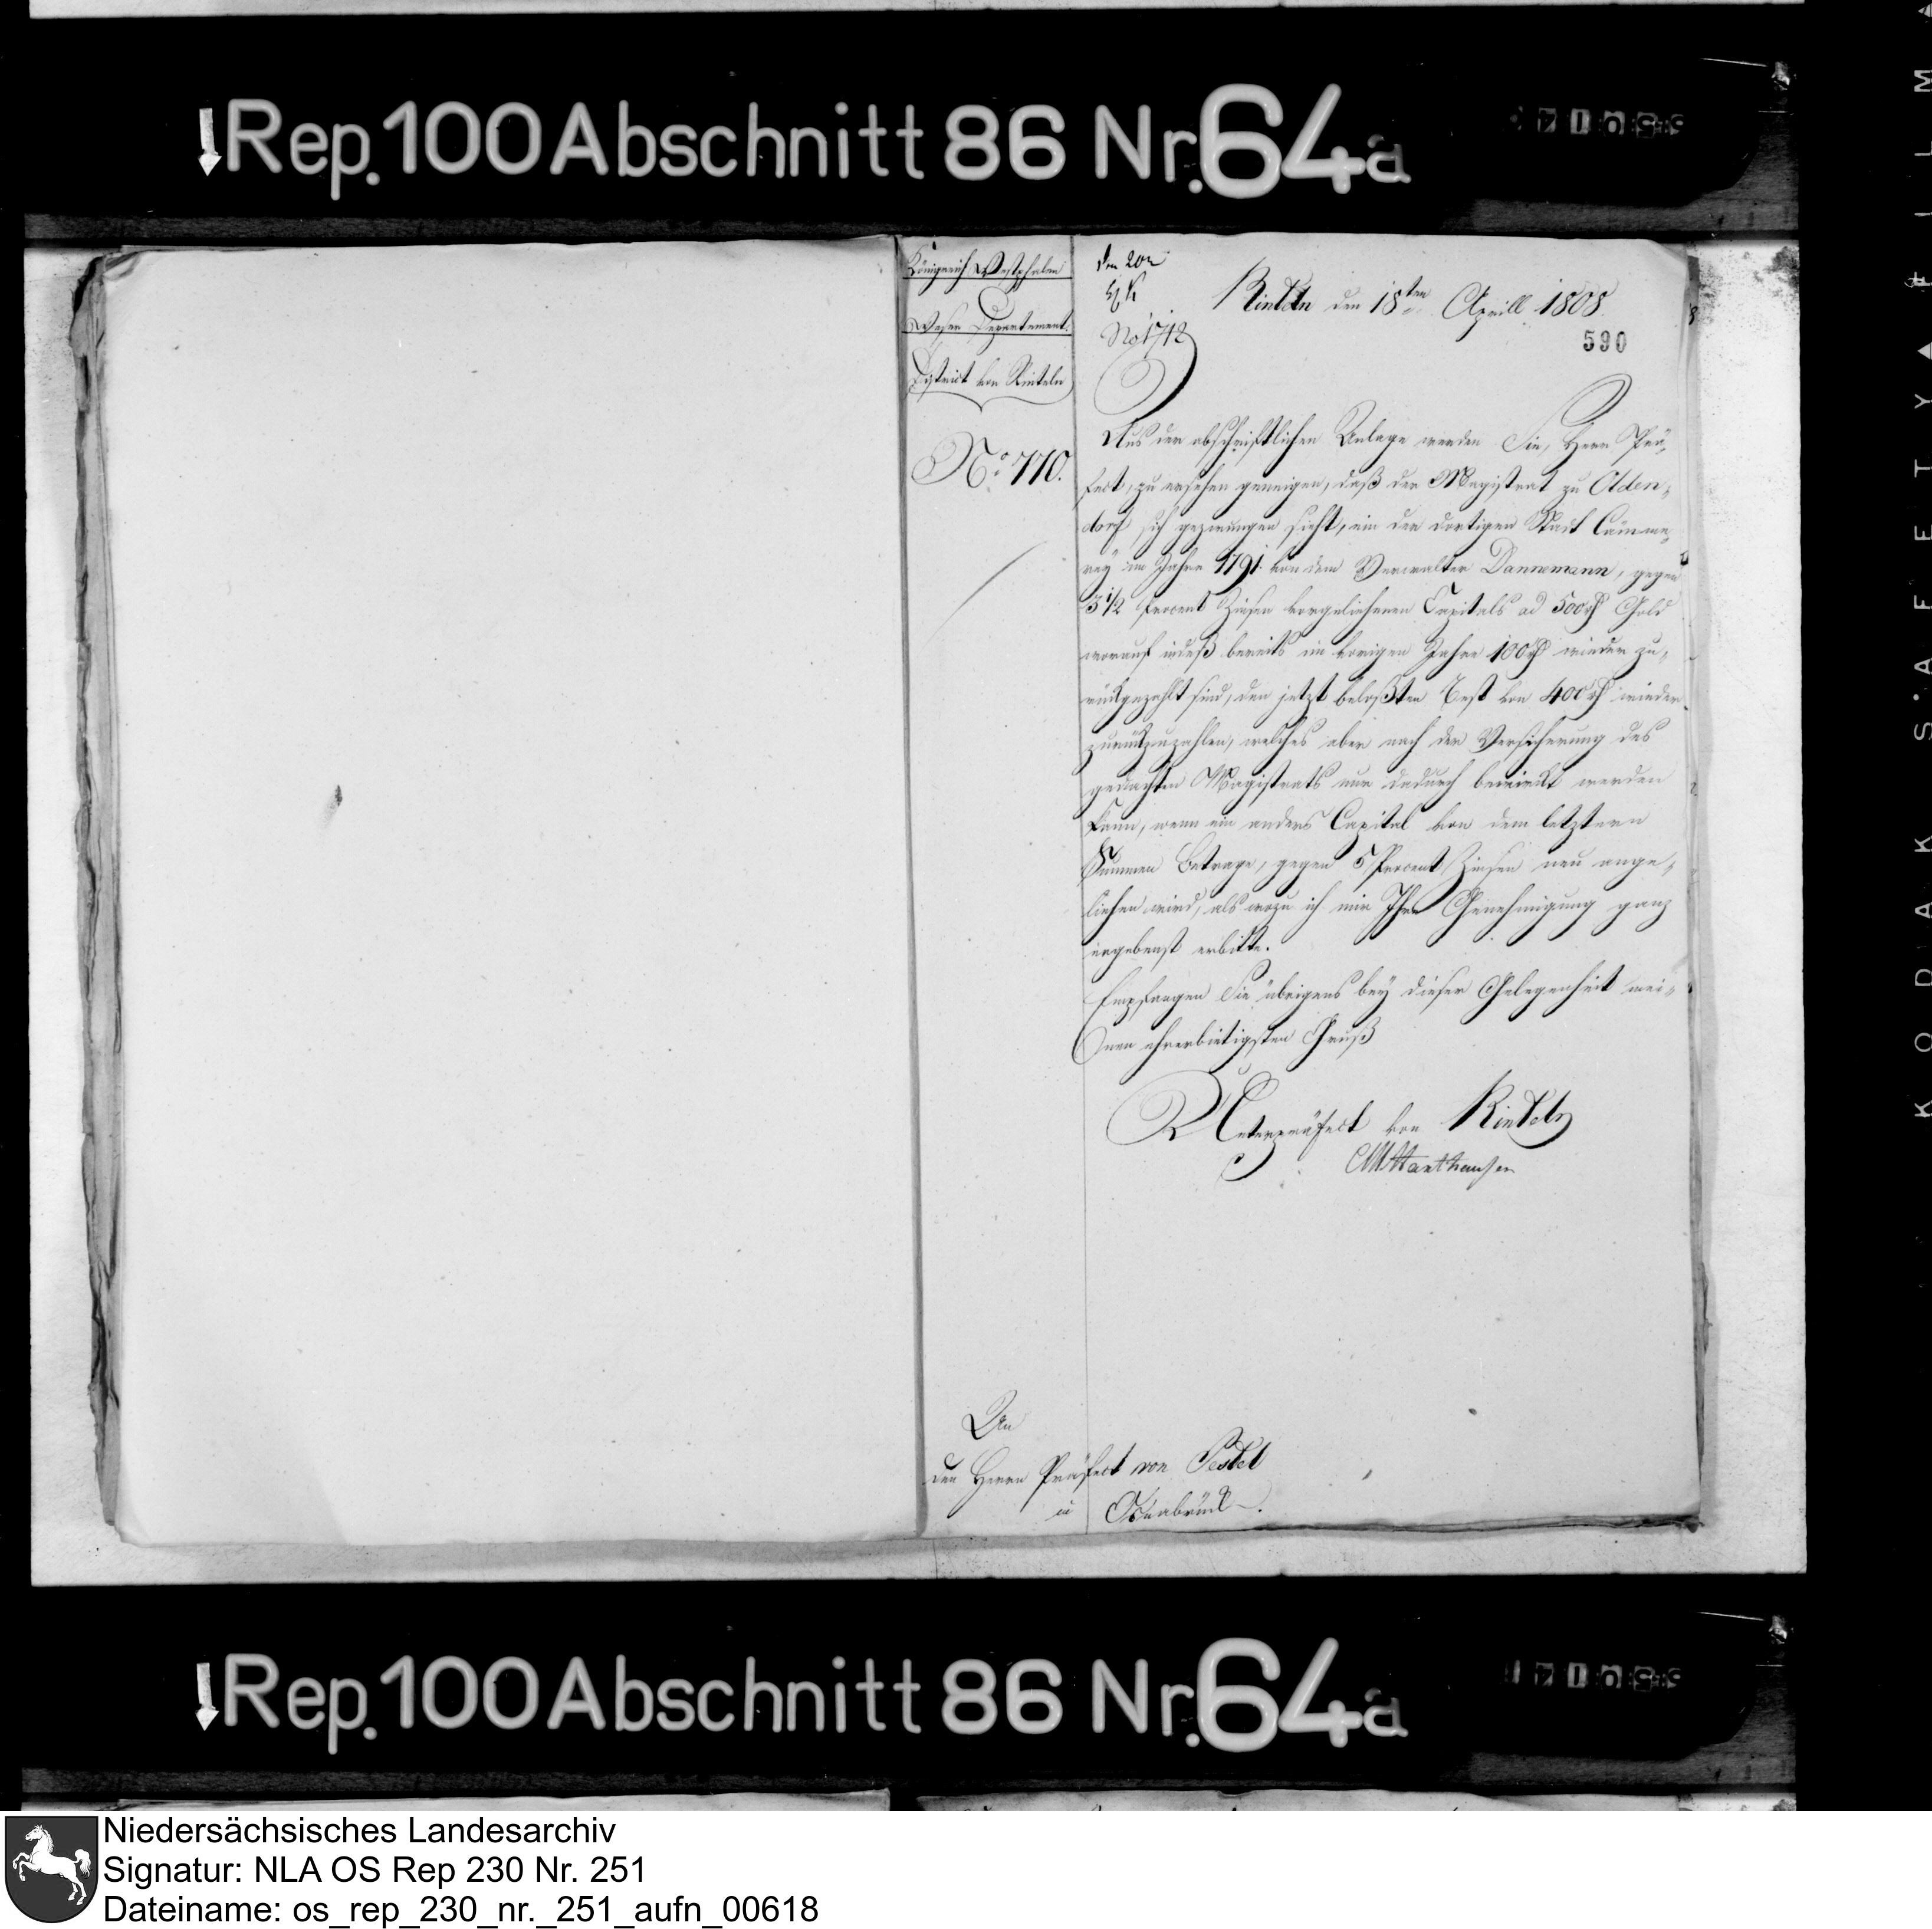 Rep. 100 Abschnitt 86 Nr. 64a
Königreich Westphalen
Weser Departement.
District von Rinteln
No 770.
den 20n
No 1712
Rinteln den 18ten Aprill 1808.
590
Aus der abschriftlichen Anlage werden Sie, Herr Prä-
fect, zu ersehen geneigen, daß der Magistrat zu Olden-
dorf sich gezwungen sieht, ein der dortigen Stadt Cämme-
rey im Jahre 1791. von dem Verwalter Dannemann, gegen
3 1/2 Procent Zinsen vorgeliehenen Capitals ad 500 rth Gold
worauf indeß bereits im vorigen Jahre 100 rth wieder zu-
rückgezahlt sind, den jetzt Rest von 400 rth wieder
zurückzuzahlen, welches aber nach der Versicherung des
gedachten Magistrats nur dadurch bewirkt werden
kann, wenn ein anders Capital von dem letztern
Summen Betrage, gegen 5 Procent Zinsen neu ange-
liehen wird, als wozu ich mir Ihre Genehmigung ganz
ergebenst erbitte.
Empfangen Sie übrigens bey dieser Gelegenheit mei-
nen ehrerbietigsten Gruß
Unterpräfect von Rinteln
An
den Herrn Präfect von Pestel
in Osnabrück.
Rep. 100 Abschnitt 86 Nr. 64a
KODAK SAFETY FILM
Niedersächsisches Landesarchiv
Signatur: NLA OS Rep 230 Nr. 251
Dateiname: os_rep_230_nr._251_aufn_00618